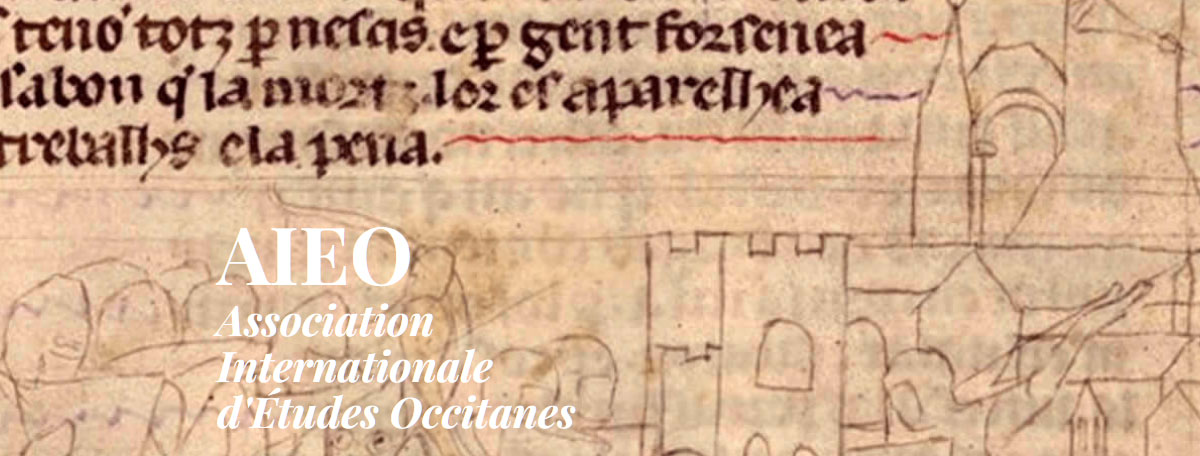 tenō totz ꝑ nescis. e ꝑ gent forsenea
sabon q̓ la mortz lor es aparelhea
trebalhs e la pena.
AIEO
Association
Internationale
d'Études Occitanes